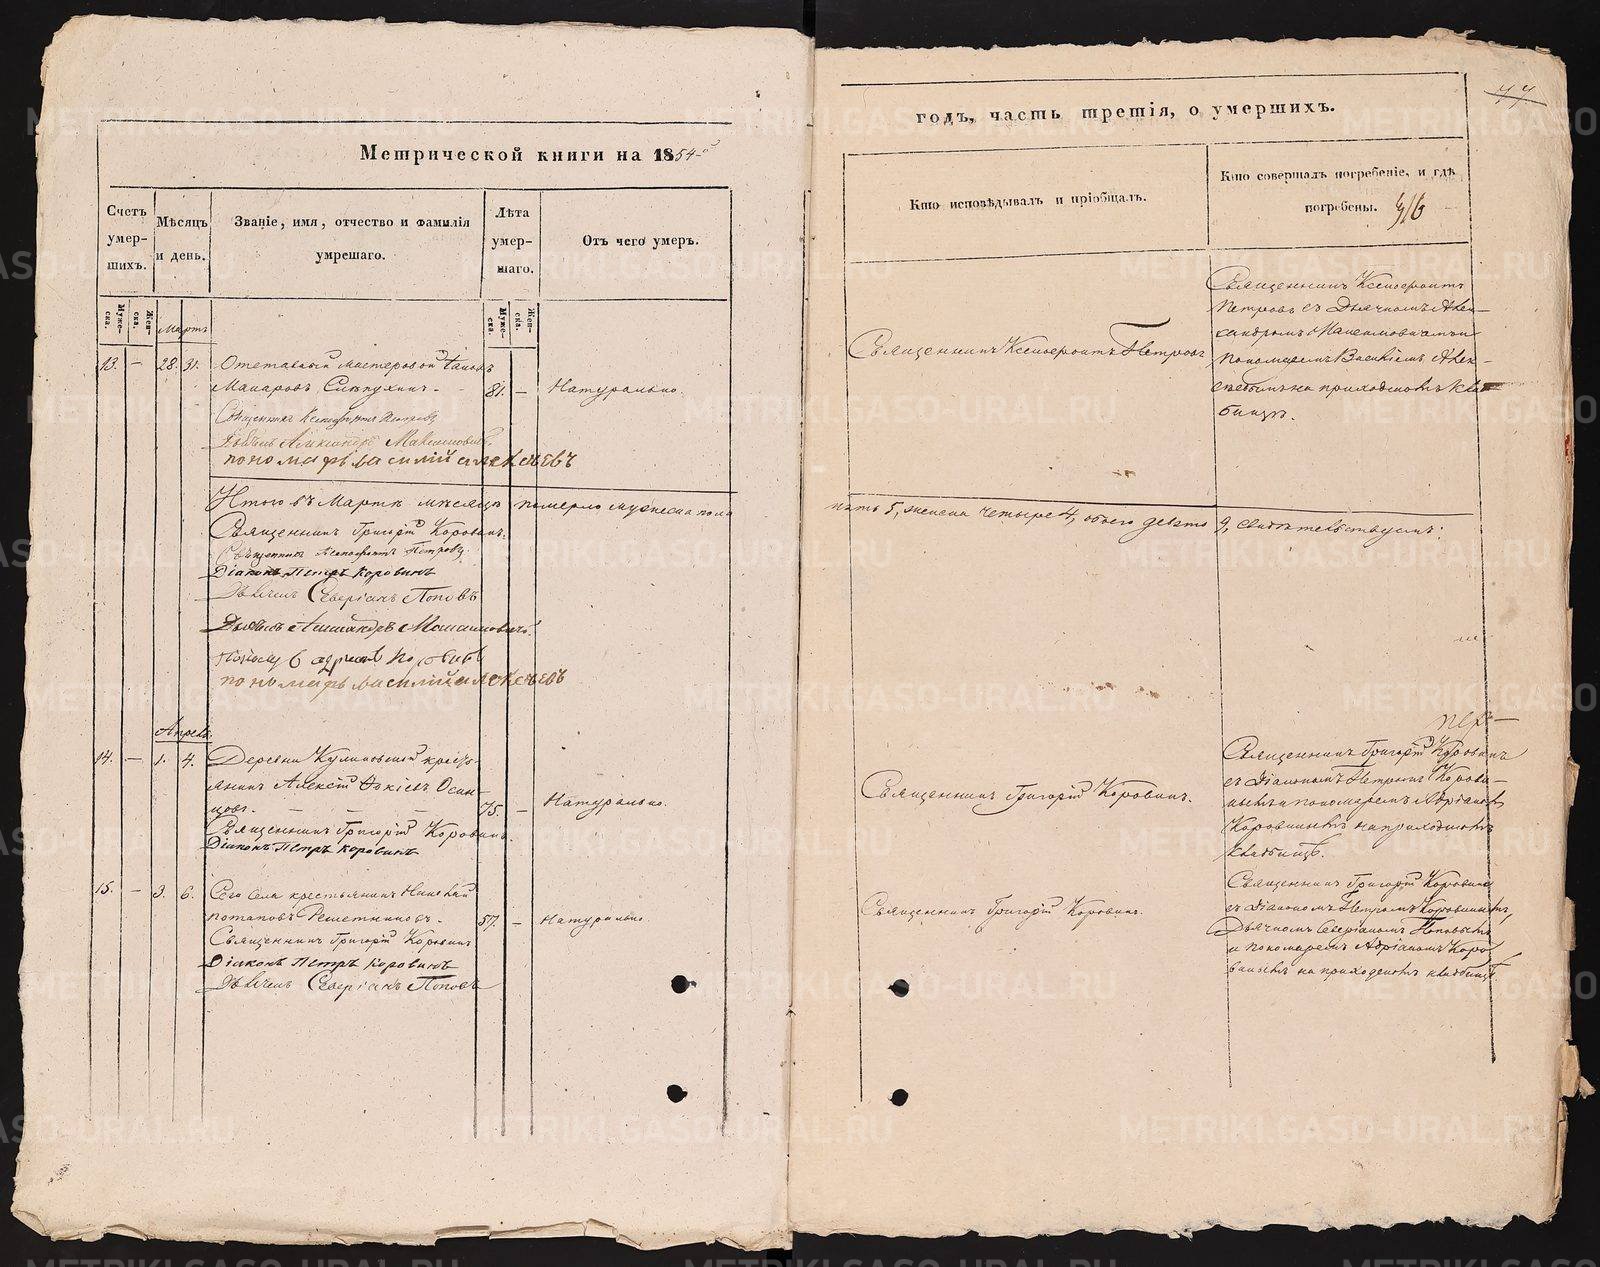 Метрической книги на 1854-й
Счетъ умер-шихъ.
Мѣсяцъ и день.
Званіе, имя, отчество и фамилія умершаго.
Лѣта умер-шаго.
Отъ чего умеръ.
Муже-ска.
Жен-ска.
Муже-ска.
Жен-ска.
Мартъ
13. — 28. 31. Отставный мастеровой
Макаровъ 81. — Натурально.
Священникъ Ксенофонтъ Петровъ
Дьячекъ Александръ Максимовичъ
пономарь василій алексѣевъ
Итого въ Мартѣ мѣсяцѣ померло мужеска пола
Священникъ Григорій Коровинъ.
Священникъ Ксенофонтъ Петровъ
Діаконъ Петръ Коровинъ
Дьячекъ Северіанъ Поповъ
Дьячекъ Александръ Максимовичъ
пономарь василій алексѣевъ
Апрель
14. — 1. 4. Деревни Куликовской кресть-
янинъ Алексій Осин-
цовъ. — 75. — Натурально.
Священникъ Григорій Коровинъ
Діаконъ Петръ Коровинъ
15. — 3. 6. Сего села крестьянинъ
Потаповъ Решетниковъ. 57. — Натурально.
Священникъ Григорій Коровинъ
Діаконъ Петръ Коровинъ
Дьячекъ Северіанъ Поповъ
77
годъ, часть третія, о умершихъ.
Кто исповѣдывалъ и пріобщалъ.
Кто совершалъ погребеніе, и гдѣ
погребены.
Священникъ Ксенофонтъ Петровъ
Священникъ Ксенофонтъ
Петровъ съ Дьячкомъ Алек-
сандромъ Максимовичемъ и
пономаремъ Василіемъ Алек-
сѣевымъ на приходскомъ клад-
бищѣ.
пять 5, женска четыре 4, обоего девять 9, свидѣтельствуемъ:
Священникъ Григорій Коровинъ.
Священникъ Григорій Коровинъ
съ Діакономъ Петромъ Корови-
нымъ и пономаремъ Адріаномъ
Коровинымъ на приходскомъ
кладбищѣ.
Священникъ Григорій Коровинъ.
Священникъ Григорій Коровинъ
съ Діакономъ Петромъ Коровинымъ,
Дьячкомъ Северіаномъ Поповымъ
и пономаремъ Адріаномъ Коро-
винымъ на приходскомъ кладбищѣ
METRIKI.GASO-URAL.RU